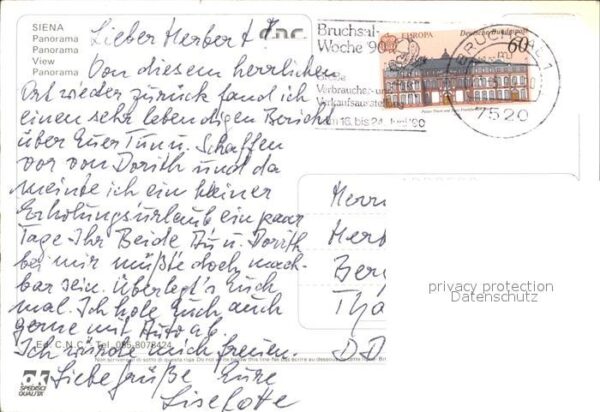 SIENA
Panorama
Panorama
View
Panorama
Lieber Herbert
c.n.c.
Von diesem herrlichen
Ort wieder zurück fand ich
einen sehr lebendigen Bericht
über Euer Tun u. Schaffen
vor von Dorith und da
meinte ich ein kleiner
Erholungsurlaub ein paar
Tage Ihr Beide Du u. Dorith
bei mir müßte doch mach-
bar sein. Überlegt's Euch
mal. Ich hole Euch auch
gerne mit Auto ab.
Ed. C.N.C. Tel. 055-8078424
Ich würde mich freuen.
Liebe Grüße Eure
Liselotte
SPEDISCI
QUALITA'
Bruchsal-
Woche '90
Große
Verbraucher- und
Verkaufsausstellung
vom 16. bis 24. Juni '90
EUROPA
Deutsche Bundespost
60
BRUCHSAL 1
7520
Herrn
Her
Ber
Thä
DD
privacy protection
Datenschutz